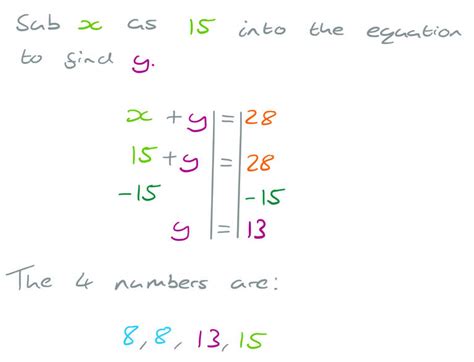 Sub x as 15 into the equation
to find y.
x + y = 28
15 + y = 28
-15 -15
y = 13
The 4 numbers are:
8, 8, 13, 15